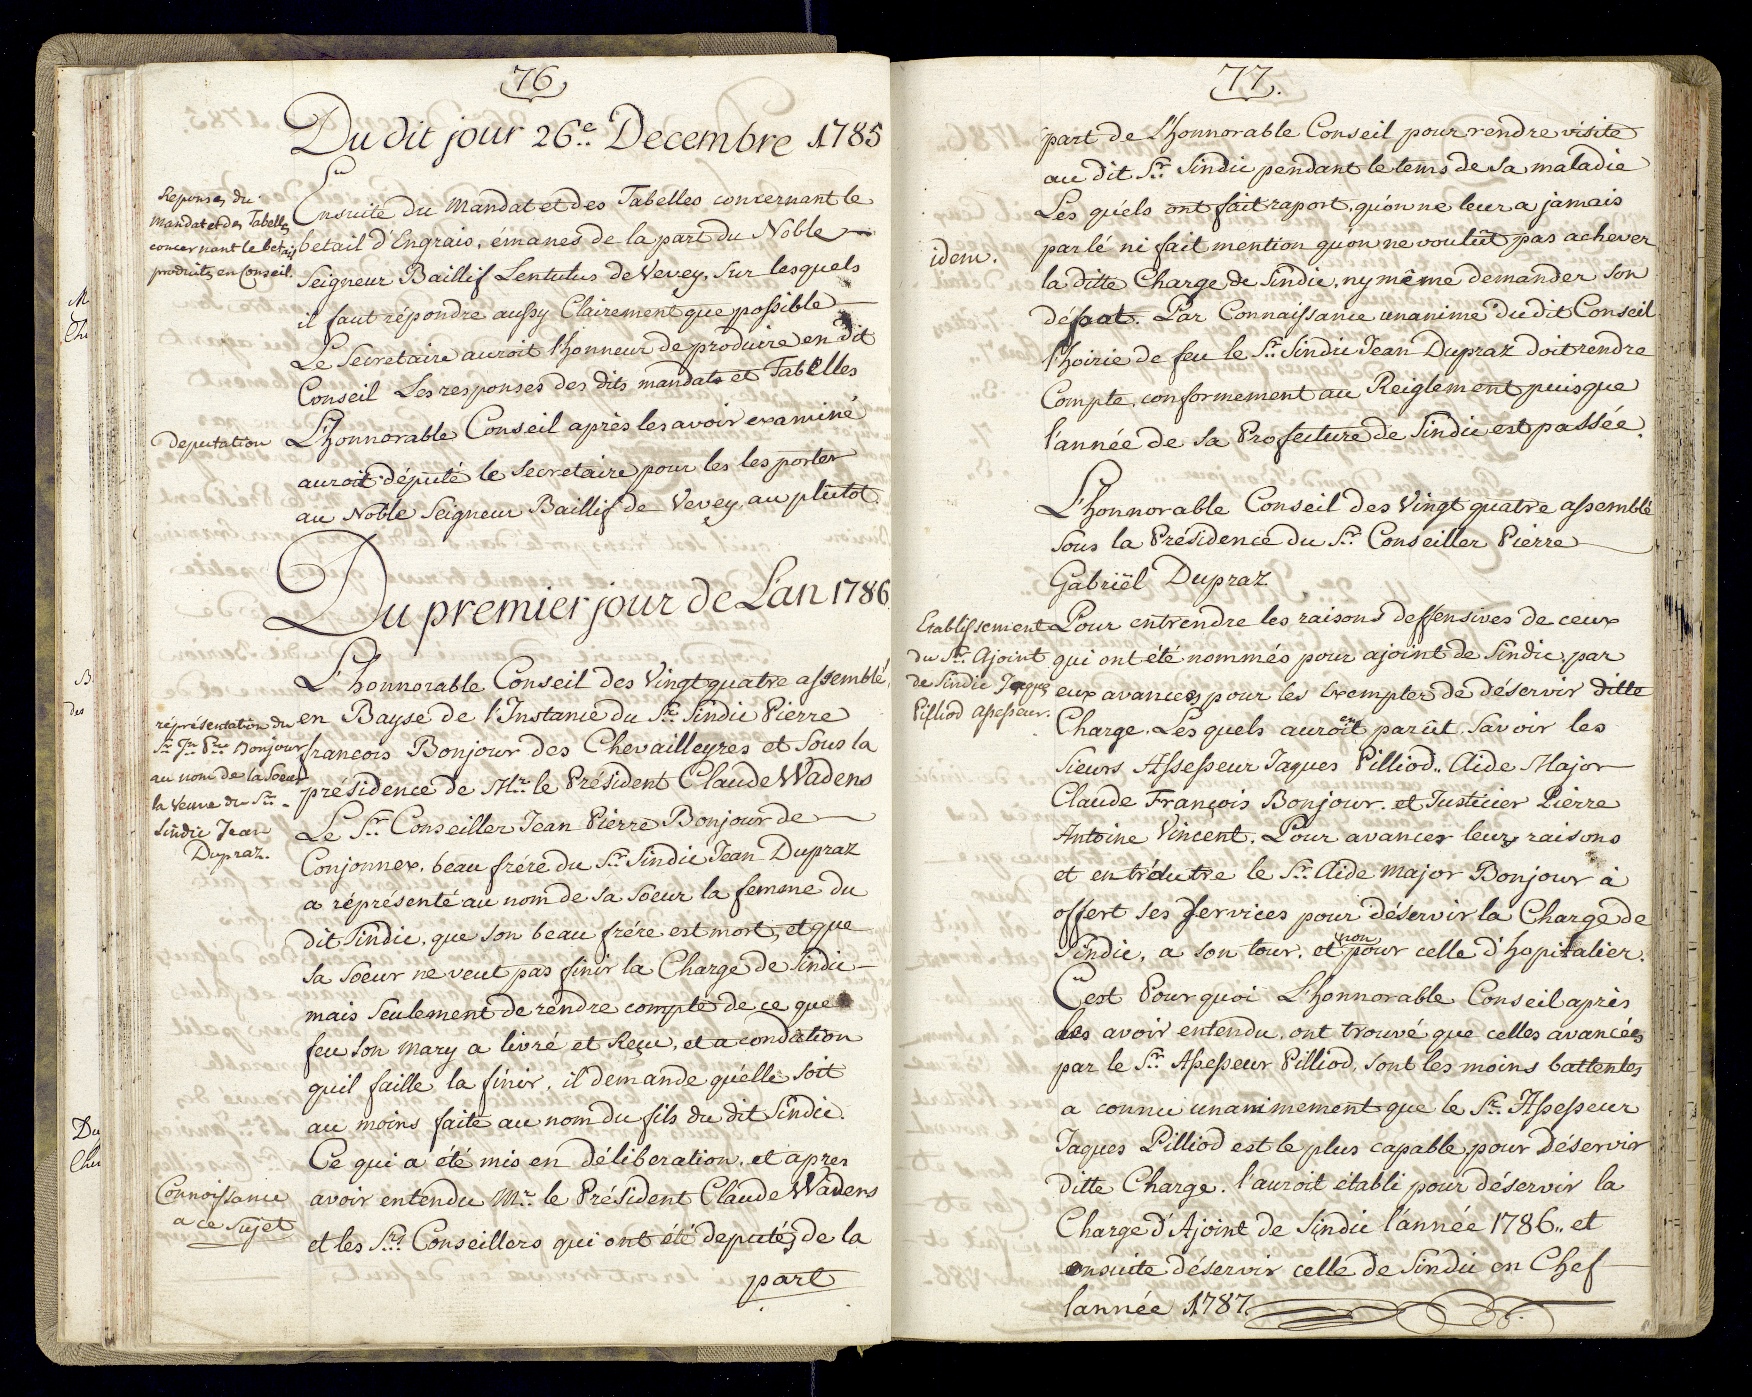 76
Du dit jour 26e Decembre 1785
Reponses du
mandat et des Tabelles
concernant le betail
produits en Conseil.
Ensuite du Mandat et des Tabelles concernant le
betail d'Engrais, émanes de la part du Noble
Seigneur Baillif Lentulus de Vevey, sur lesquels
il faut répondre aussy Clairement que possible
Le Secretaire auroit l'honneur de produire en dit
Conseil Les responses des dits mandats et Tabelles
deputation
L'honnorable Conseil après les avoir examiné
auroit député le Secretaire pour les les porter
au Noble Seigneur Baillif de Vevey au plûtot.
Du premier jour de L'an 1786
L'honnorable Conseil des Vingtquatre assemblé,
en Bayse de l'Instance du Sr. Sindic Pierre
francois Bonjour des Chevailleyres et Sous la
présidence de Mr. le Président Claude Wadens
réprésentation du
Sr. Jn. Pre. Bonjour
au nom de la Soeur
la Veuve du Sr.
Sindic Jean
Dupraz.
Le Sr. Conseiller Jean Pierre Bonjour de
Conjonnex, beau frére du Sr. Sindic Jean Dupraz
a réprésenté au nom de Sa Soeur la femme du
dit Sindic, que Son beau frére est mort, et que
Sa Soeur ne veut pas finir la Charge de Sindic
mais Seulement de rendre compte de ce que
feu Son Mary a livré et Reçu, et a condition
quil faille la finir, il demande qu'elle Soit
au moins faite au nom du fils du dit Sindic.
Ce qui a été mis en déliberation, et apres
Connoissance
a ce Sujet
avoir entendu Mr. le Président Claude Wadens
et les Srs. Conseillers qui ont été deputés de la
part
77.
part de l'honnorable Conseil pour rendre visite
au dit Sr. Sindic pendant le tems de Sa maladie
Les qu'els ont fait raport, qu'on ne leur a jamais
idem.
parlé ni fait mention qu'on ne voulût pas achever
la ditte Charge de Sindic, ny même demander Son
défaut. Par Connaissance unanime du dit Conseil
l'hoirie de feu le Sr. Sindic Jean Dupraz doit rendre
Compte, conformement au Reiglement puisque
l'année de Sa Profecture de Sindic est passée.
L'honnorable Conseil des Vingt quatre assemblé
Sous la Présidence du Sr. Conseiller Pierre
Gabriël Dupraz
Etablissement
du Sr. Ajoint
de Sindic Jaques
Pilliod assesseur.
Pour entrendre les raisons deffensives de ceux
qui ont été nommés pour ajoint de Sindic, par
eux avancés pour les Exempter de déservir ditte
Charge, Lesquels auroit en parût, Savoir les
Sieurs Assesseur Jaques Pilliod, Aide Major
Claude François Bonjour, et Justicier Pierre
Antoine Vincent, Pour avancer leurs raisons
et entréutre le Sr. Aide Major Bonjour à
offert ses Services pour déservir la Charge de
Sindic, a Son tour, et non pour celle d'hopitalier.
C'est Pourquoi L'honnorable Conseil après
les avoir entendu, ont trouvé que celles avancées
par le Sr. Assesseur Pilliod, sont les moins battentes
a connu unanimement que le Sr. Assesseur
Jaques Pilliod est le plus capable pour déservir
ditte Charge, l'auroit établi pour déservir la
Charge d'Ajoint de Sindic l'année 1786., et
ensuite déservir celle de Sindic en Chef
l'année 1787